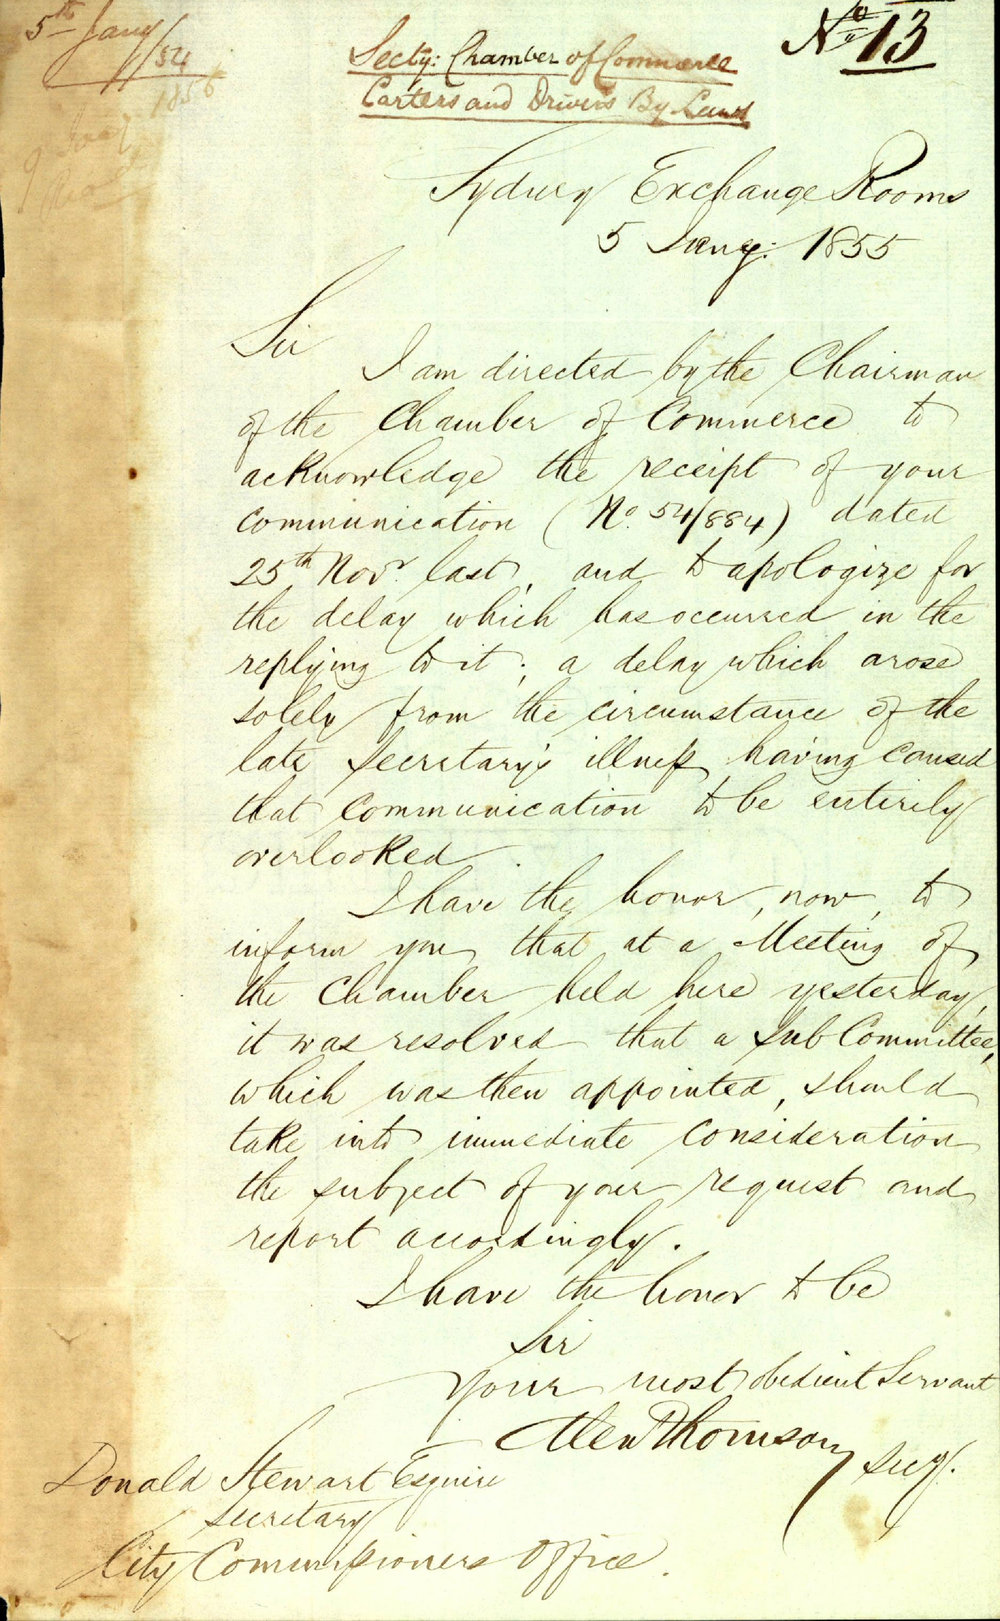 5th Jany
/54
1856
No 13
Secty: Chamber of Commerce
Carters and Drivers By Laws
Sydney Exchange Rooms
5 Jany: 1855
Sir
I am directed by the Chairman
of the Chamber of Commerce to
acknowledge the receipt of your
communication (No. 54/884) dated
25th Novr. last, and to apologize for
the delay which has occurred in the
replying to it; a delay which arose
solely from the circumstance of the
late Secretary's illness having caused
that communication to be entirely
overlooked.
I have the honor, now, to
inform you that at a Meeting of
the Chamber held here yesterday,
it was resolved that a Sub Committee,
which was then appointed, should
take into immediate consideration
the subject of your request and
report accordingly.
I have the honor to be
Sir
Your most obedient Servant
Alex Thomson Secy.
Donald Stewart Esquire
Secretary
City Commissioners Office.